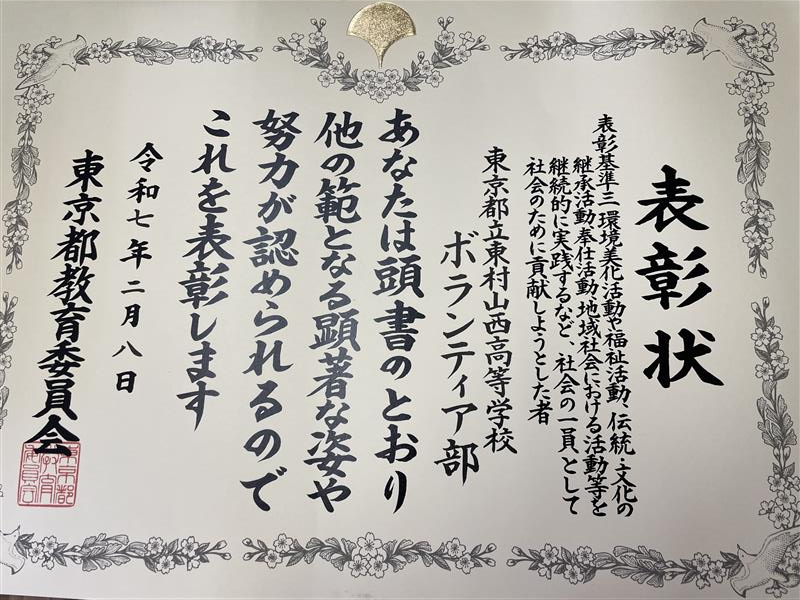 表彰状
表彰基準三 環境美化活動や福祉活動、伝統・文化の
継承活動、奉仕活動、地域社会における活動等を
継続的に実践するなど、社会の一員として
社会のために貢献しようとした者
東京都立東村山西高等学校
ボランティア部
あなたは頭書のとおり
他の範となる顕著な姿や
努力が認められるので
これを表彰します
令和七年二月八日
東京都教育委員会
東京都
教育
委員会